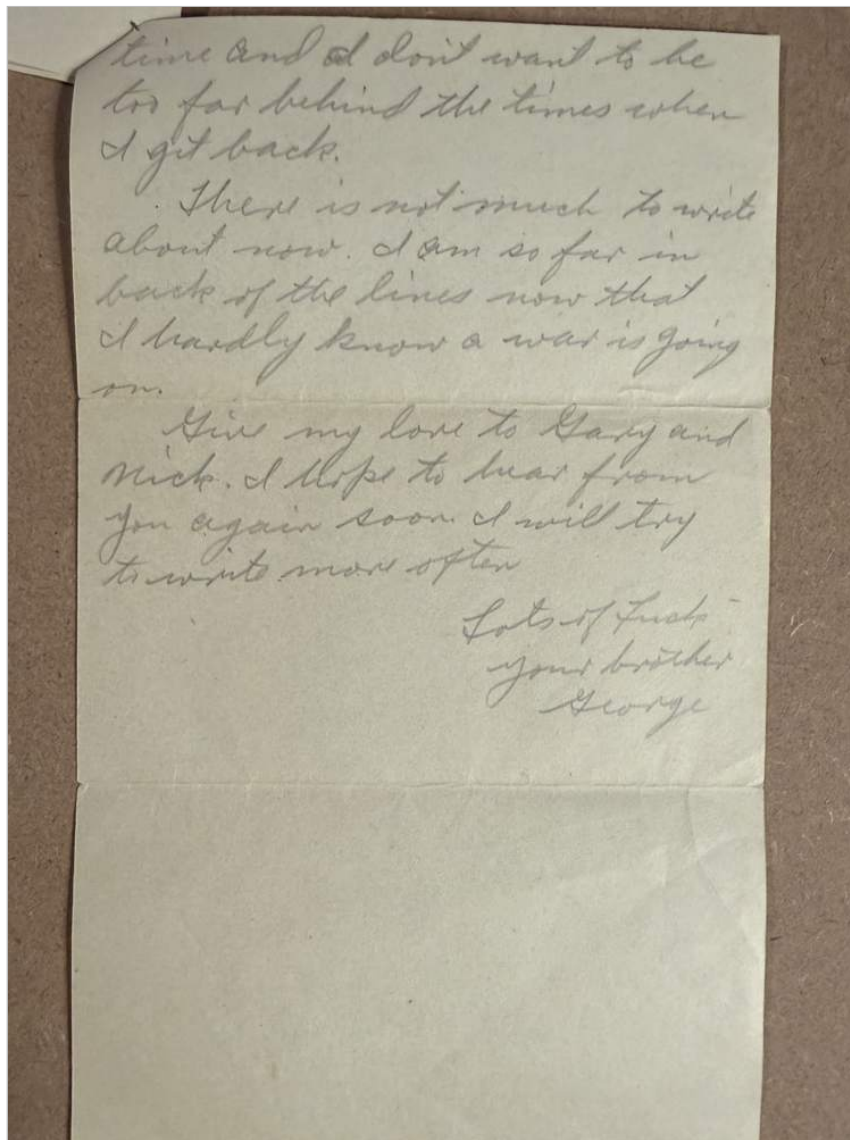 time and I don't want to be
too far behind the times when
I get back.
There is not much to write
about now. I am so far in
back of the lines now that
I hardly know a war is going
on.
Give my love to Gary and
Nick. I hope to hear from
you again soon. I will try
to write more often
Lots of Luck
your brother
George